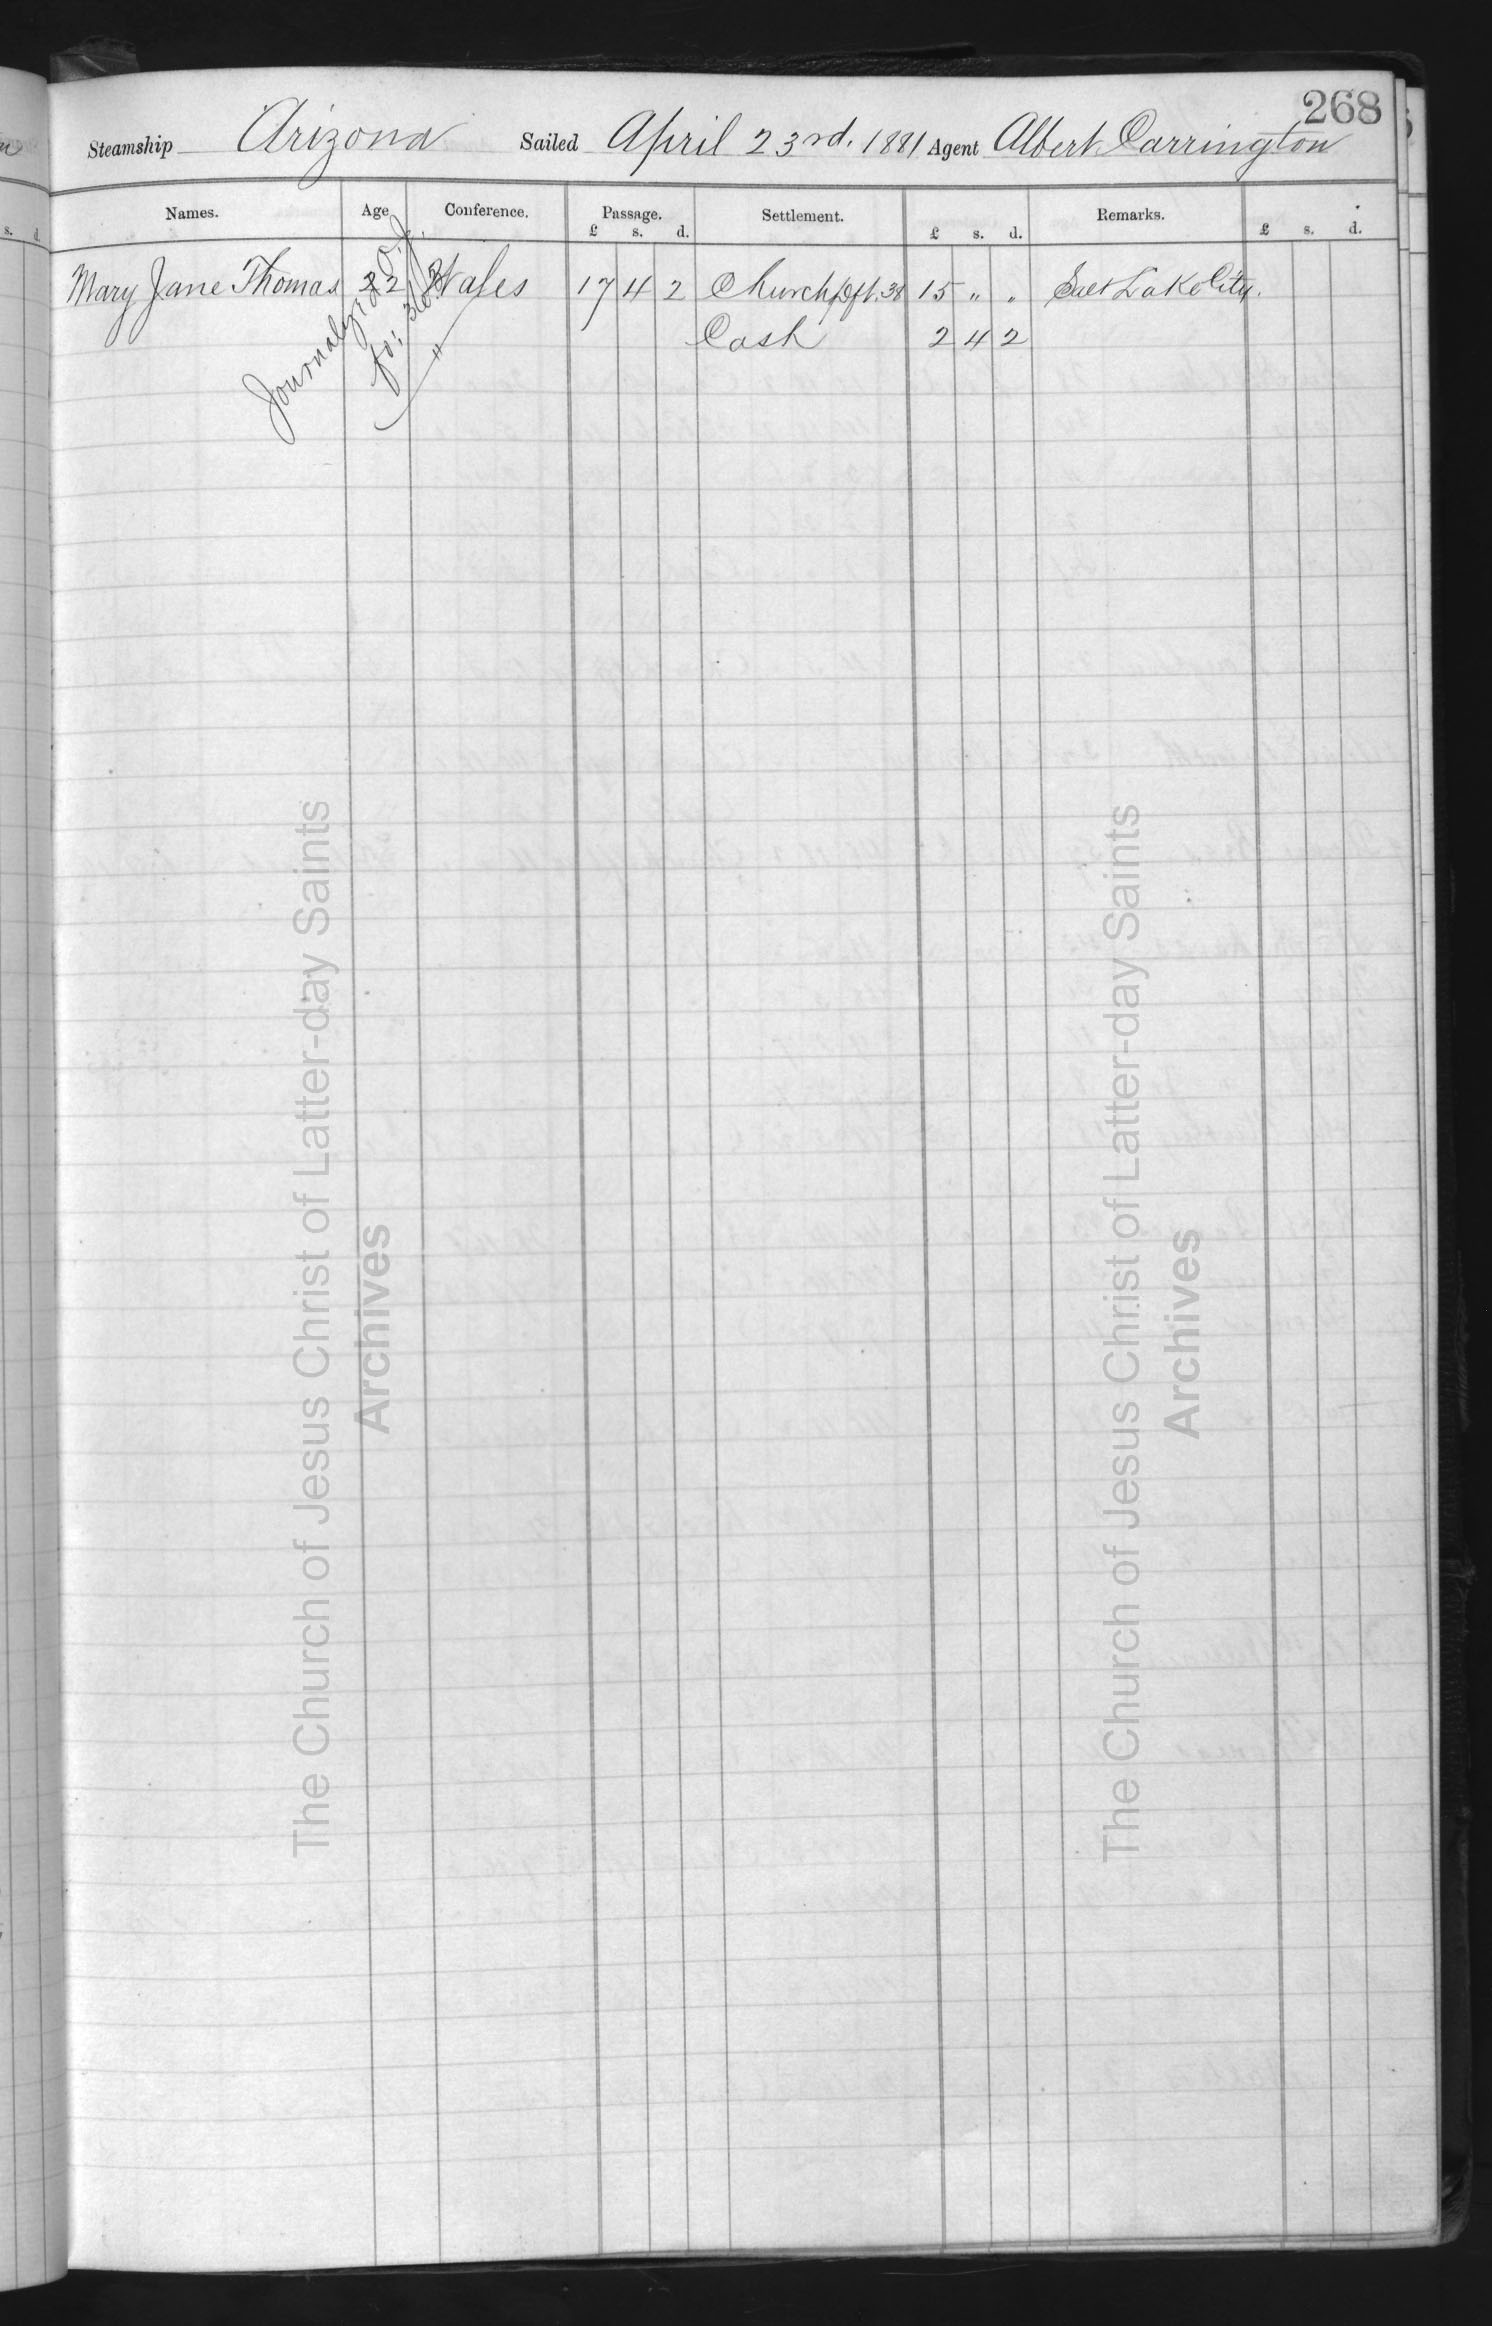 268
Steamship Arizona Sailed April 23rd. 1881 Agent Albert Carrington
Names. Age Conference. Passage. Settlement. Remarks.
£ s. d. £ s. d. £ s. d.
Mary Jane Thomas 22 Wales 17 4 2 Church Dft. 38 15 " " Salt Lake City.
Cash 2 4 2
Journalyzed O. J.
fo: 363
"
The Church of Jesus Christ of Latter-day Saints
Archives
The Church of Jesus Christ of Latter-day Saints
Archives